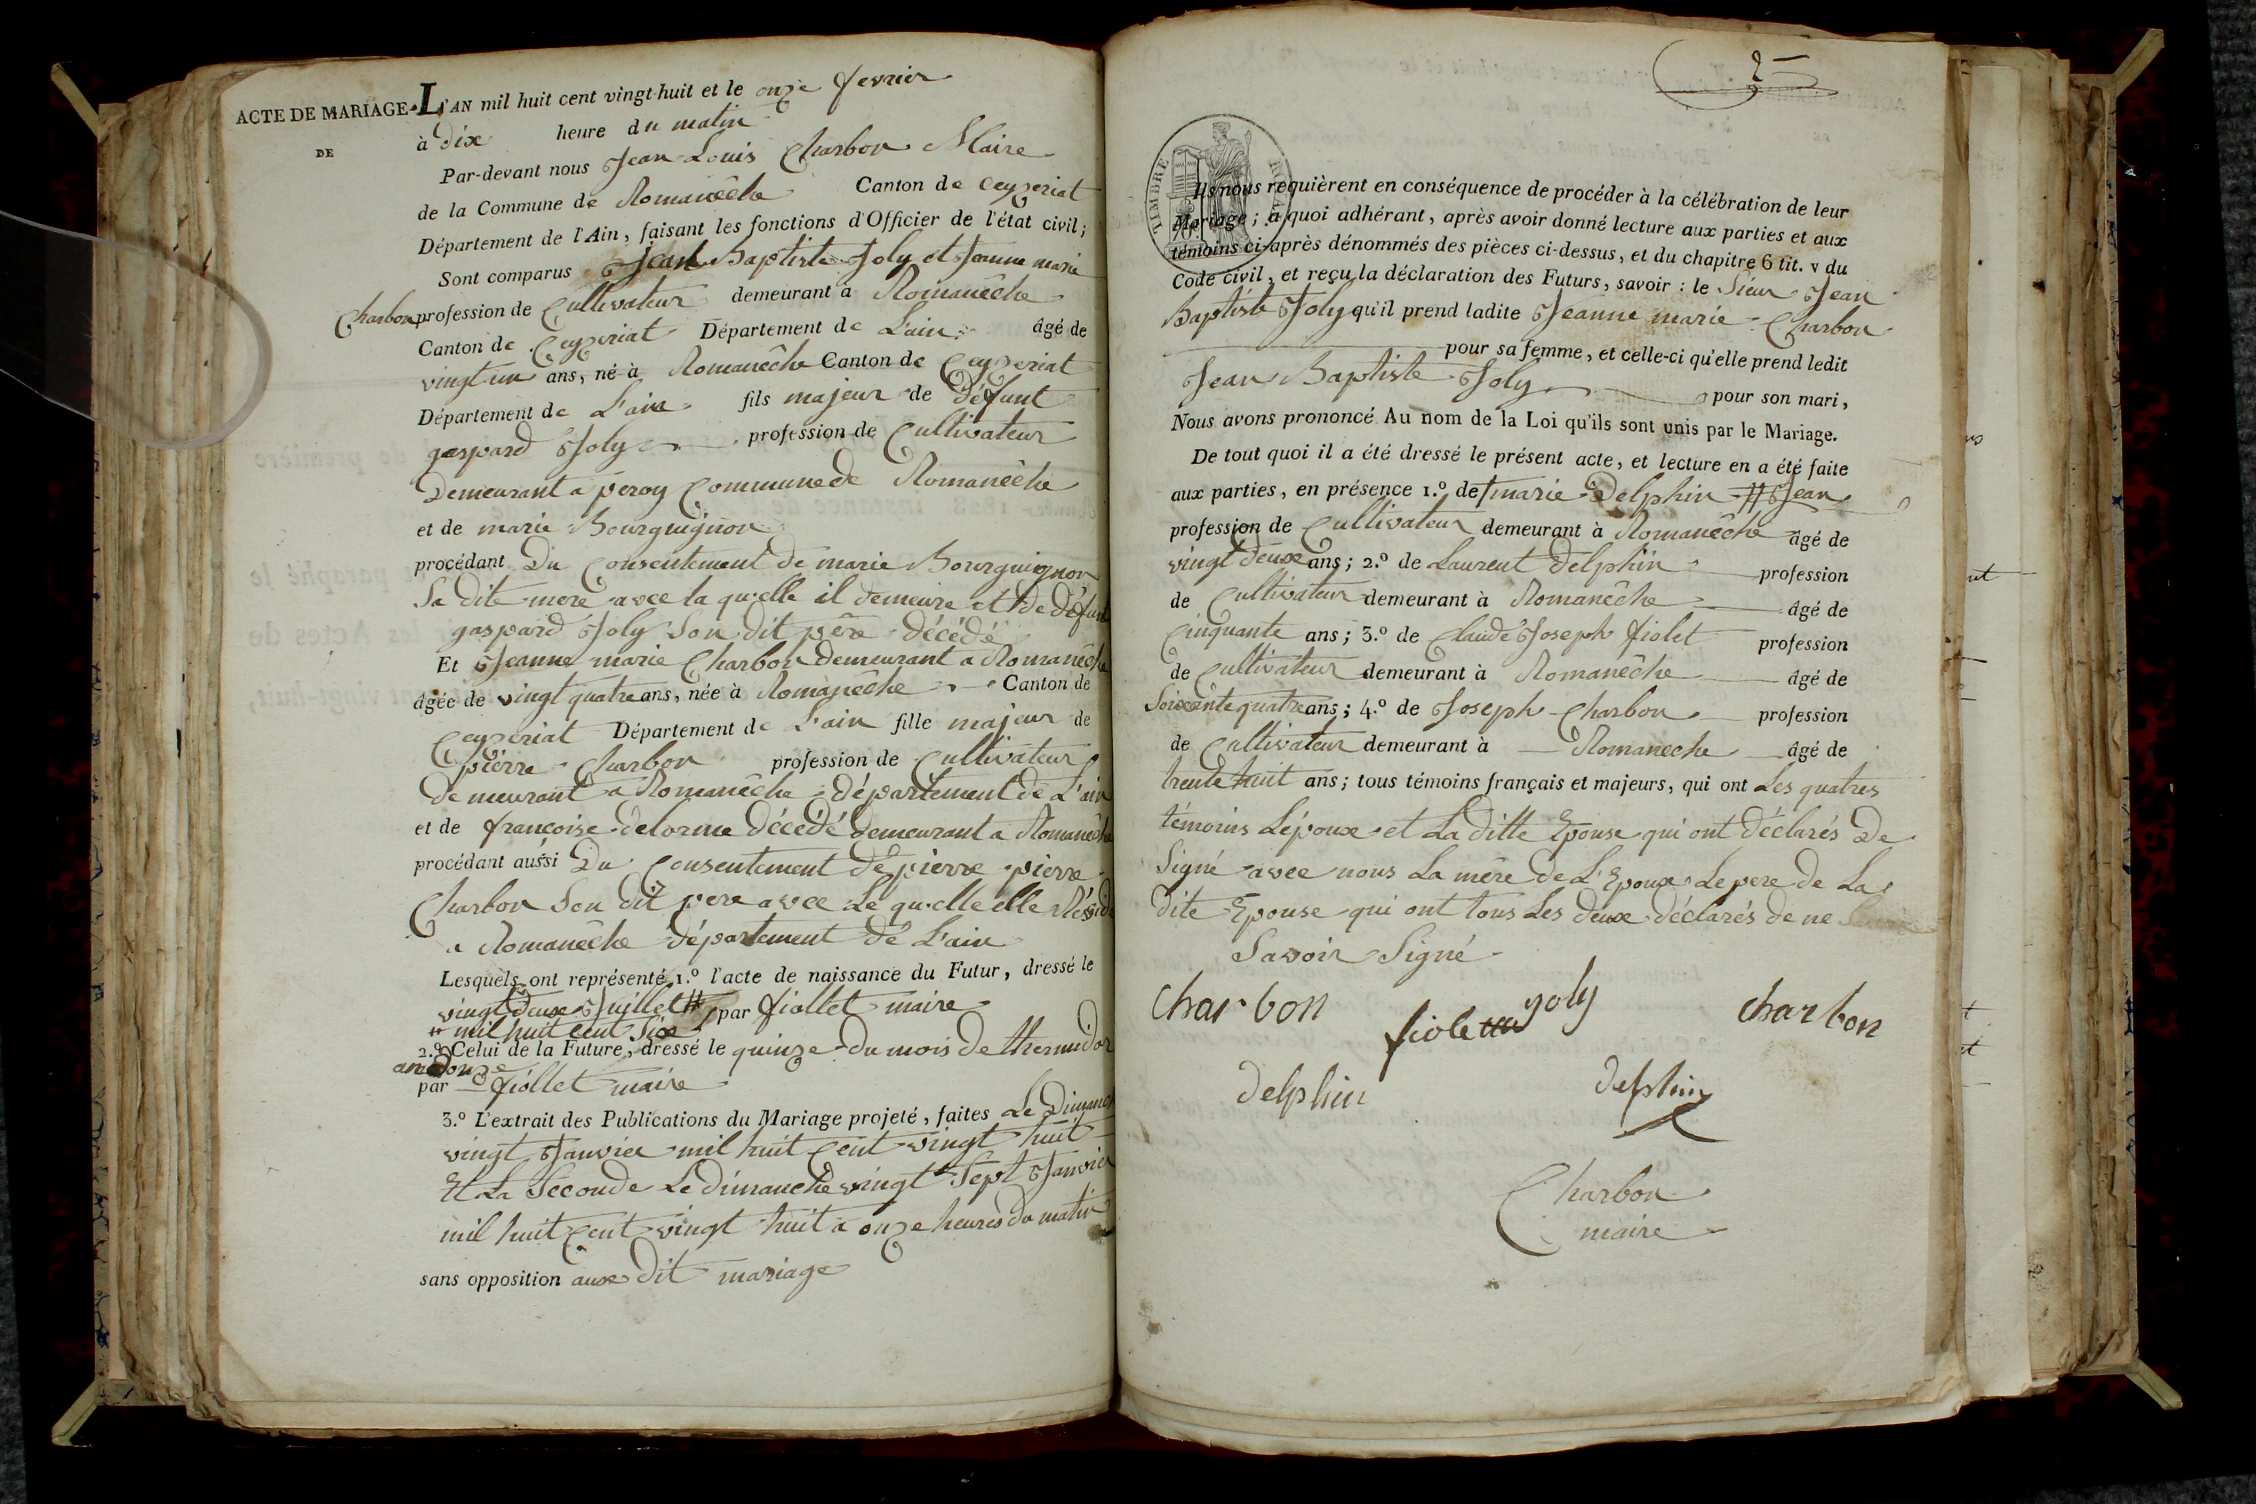 ACTE DE MARIAGE
DE
L'AN mil huit cent vingt-huit et le onze fevrier
à Dix heure du matin
Par-devant nous Jean Louis Charbon Maire
de la Commune de Romanêche Canton de Ceyzeriat
Département de l'Ain, faisant les fonctions d'Officier de l'état civil;
Sont comparus Jean Baptiste Joly et Jeanne marie
Charbon profession de Cultivateur demeurant à Romanêche
Canton de Ceyzeriat Département de L'ain âgé de
vingt un ans, né à Romanêche Canton de Ceyzeriat
Département de L'ain fils majeur de Défunt
gaspard Joly profession de Cultivateur
Demeurant a peroy Commune de Romanêche
et de marie Bourguignon
procédant Du Consentement de marie Bourguignon
Sa dite mere avec la quelle il demeure et de Défunt
gaspard Joly Son dit père décédé
Et Jeanne marie Charbon demeurant a Romanêche
âgée de vingt quatre ans, née à Romanêche Canton de
Ceyzeriat Département de L'ain fille majeur de
pierre Charbon profession de Cultivateur
Demeurant a Romanêche département de L'ain
et de françoise delorme Décédé demeurant a Romanêche
procédant aussi Du Consentement de pierre pierre
Charbon Son dit pere avec Le quelle elle Réside
a Romanêche département de L'ain
Lesquels ont représenté 1.º l'acte de naissance du Futur, dressé le
vingt Deux Juillet # par fiollet maire
# mil huit cent Six
2.º Celui de la Future, dressé le quinze du mois de thermidor
an Douze
par fiollet maire
3.º L'extrait des Publications du Mariage projeté, faites Le Dimanche
vingt Janvier mil huit Cent vingt huit
Et La Seconde Le dimanche vingt Sept Janvier
mil huit Cent vingt huit à onze heures du matin
sans opposition aux Dit mariage
2
TIMBRE ROYAL
Ils nous requièrent en conséquence de procéder à la célébration de leur
Mariage; à quoi adhérant, après avoir donné lecture aux parties et aux
témoins ci-après dénommés des pièces ci-dessus, et du chapitre 6 tit. v du
Code civil, et reçu la déclaration des Futurs, savoir: le Sieur Jean
Baptiste Joly qu'il prend ladite Jeanne marie Charbon
pour sa femme, et celle-ci qu'elle prend ledit
Jean Baptiste Joly pour son mari,
Nous avons prononcé Au nom de la Loi qu'ils sont unis par le Mariage.
De tout quoi il a été dressé le présent acte, et lecture en a été faite
aux parties, en présence 1.º de marie Delphin # Jean
profession de Cultivateur demeurant à Romanêche âgé de
vingt Deux ans; 2.º de Laurent Delphin profession
de Cultivateur demeurant à Romanêche âgé de
Cinquante ans; 3.º de Claude Joseph fiolet profession
de Cultivateur demeurant à Romanêche âgé de
Soixente quatre ans; 4.º de Joseph Charbon profession
de Cultivateur demeurant à Romaneche âgé de
trente huit ans; tous témoins français et majeurs, qui ont Les quatres
témoins L'époux et La ditte Epouse qui ont déclarés De
Signé avec nous La mère De L'Epoux Le pere de La
Dite Epouse qui ont tous Les deux déclarés de ne
Savoir Signé
charbon
fiolet
joly
charbon
delphin
delphin
Charbon
maire